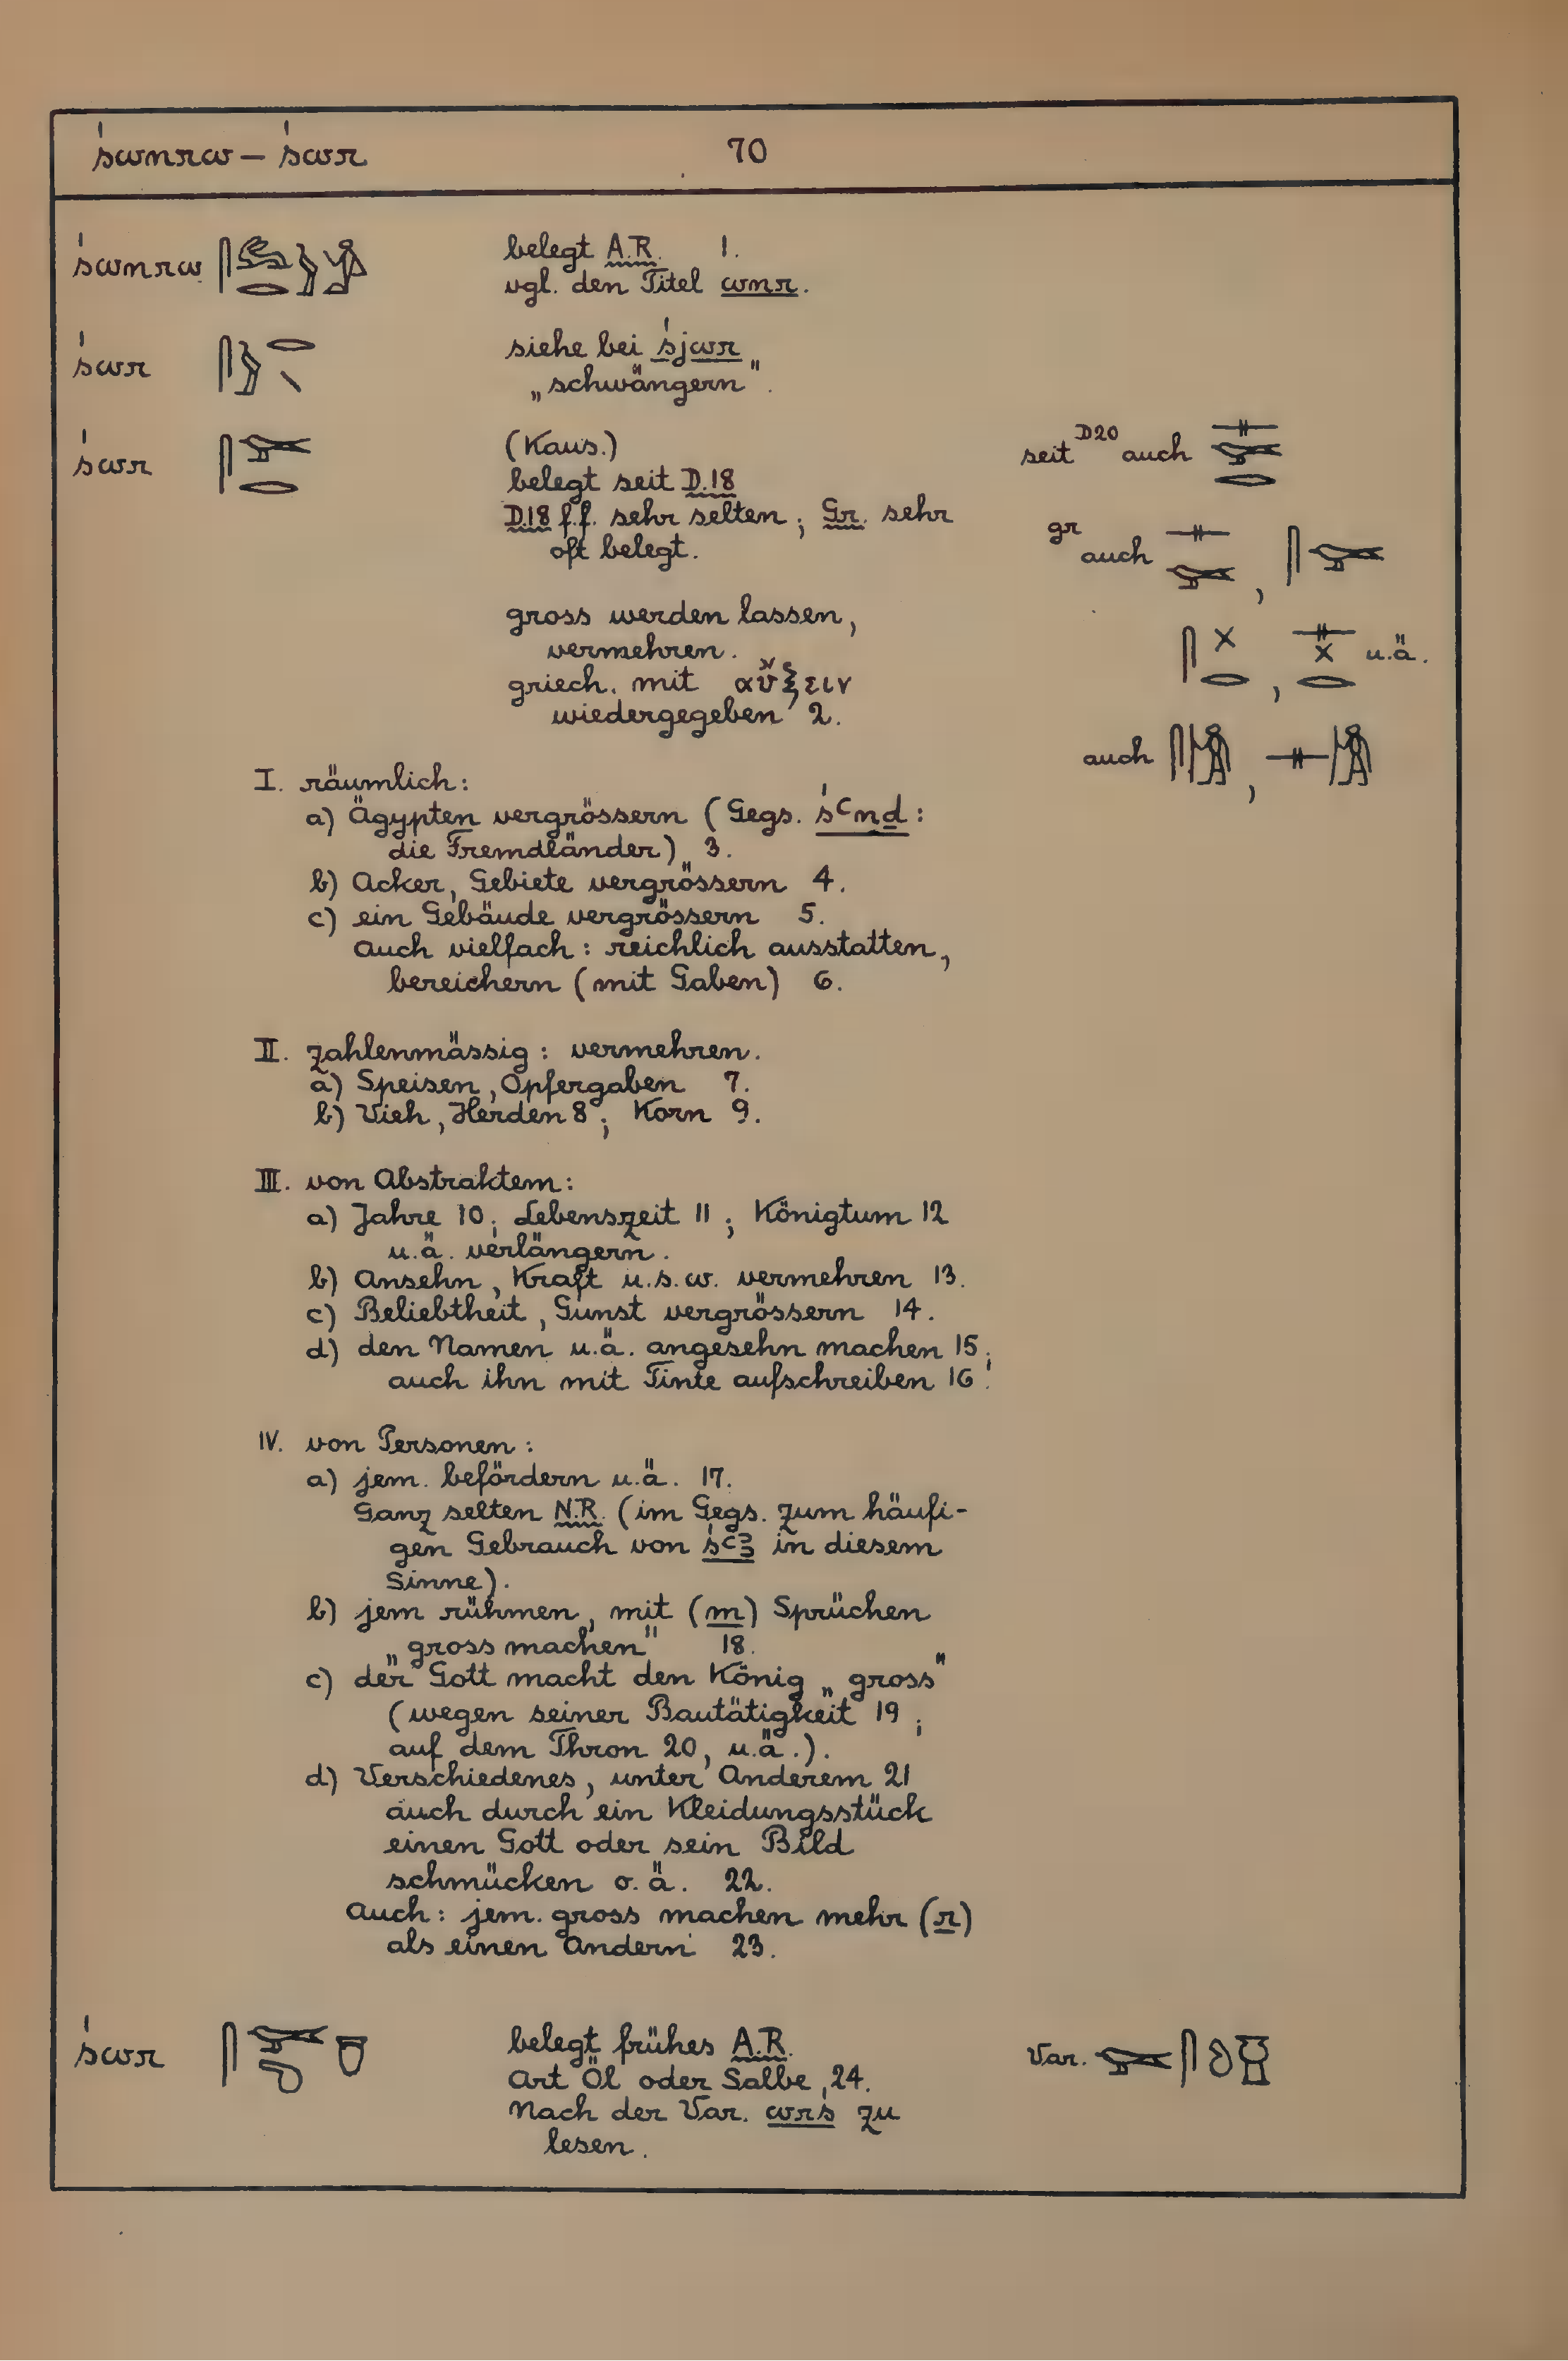 śwnrw – śwr 70
śwnrw belegt A.R. 1.
vgl. den Titel wnr.
śwr siehe bei śjwr
„schwängern".
śwr (Kaus.) seit D20 auch
belegt seit D.18
D.18 f.f. sehr selten; Gr. sehr
oft belegt.
gr auch ,
gross werden lassen,
vermehren.
, u.ä.
griech. mit αὔξειν
wiedergegeben 2.
auch ,
I. räumlich:
a) Ägypten vergrössern (Gegs. śꜥnḏ:
die Fremdländer) 3.
b) Äcker, Gebiete vergrössern 4.
c) ein Gebäude vergrössern 5.
Auch vielfach: reichlich ausstatten,
bereichern (mit Gaben) 6.
II. zahlenmässig: vermehren.
a) Speisen, Opfergaben 7.
b) Vieh, Herden 8; Korn 9.
III. von Abstraktem:
a) Jahre 10; Lebenszeit 11; Königtum 12
u.ä. verlängern.
b) Ansehn, Kraft u.s.w. vermehren 13.
c) Beliebtheit, Gunst vergrössern 14.
d) den Namen u.ä. angesehn machen 15;
auch ihn mit Tinte aufschreiben 16.
IV. von Personen:
a) jem. befördern u.ä. 17.
Ganz selten N.R. (im Gegs. zum häufi-
gen Gebrauch von śꜥꜣ in diesem
Sinne).
b) jem rühmen, mit (m) Sprüchen
„gross machen" 18.
c) der Gott macht den König „gross"
(wegen seiner Bautätigkeit 19;
auf dem Thron 20, u.ä.).
d) Verschiedenes, unter Anderem 21
auch durch ein Kleidungsstück
einen Gott oder sein Bild
schmücken o.ä. 22.
Auch: jem. gross machen mehr (r)
als einen Andern 23.
śwr belegt frühes A.R. Var.
Art Öl oder Salbe, 24.
Nach der Var. wrś zu
lesen.